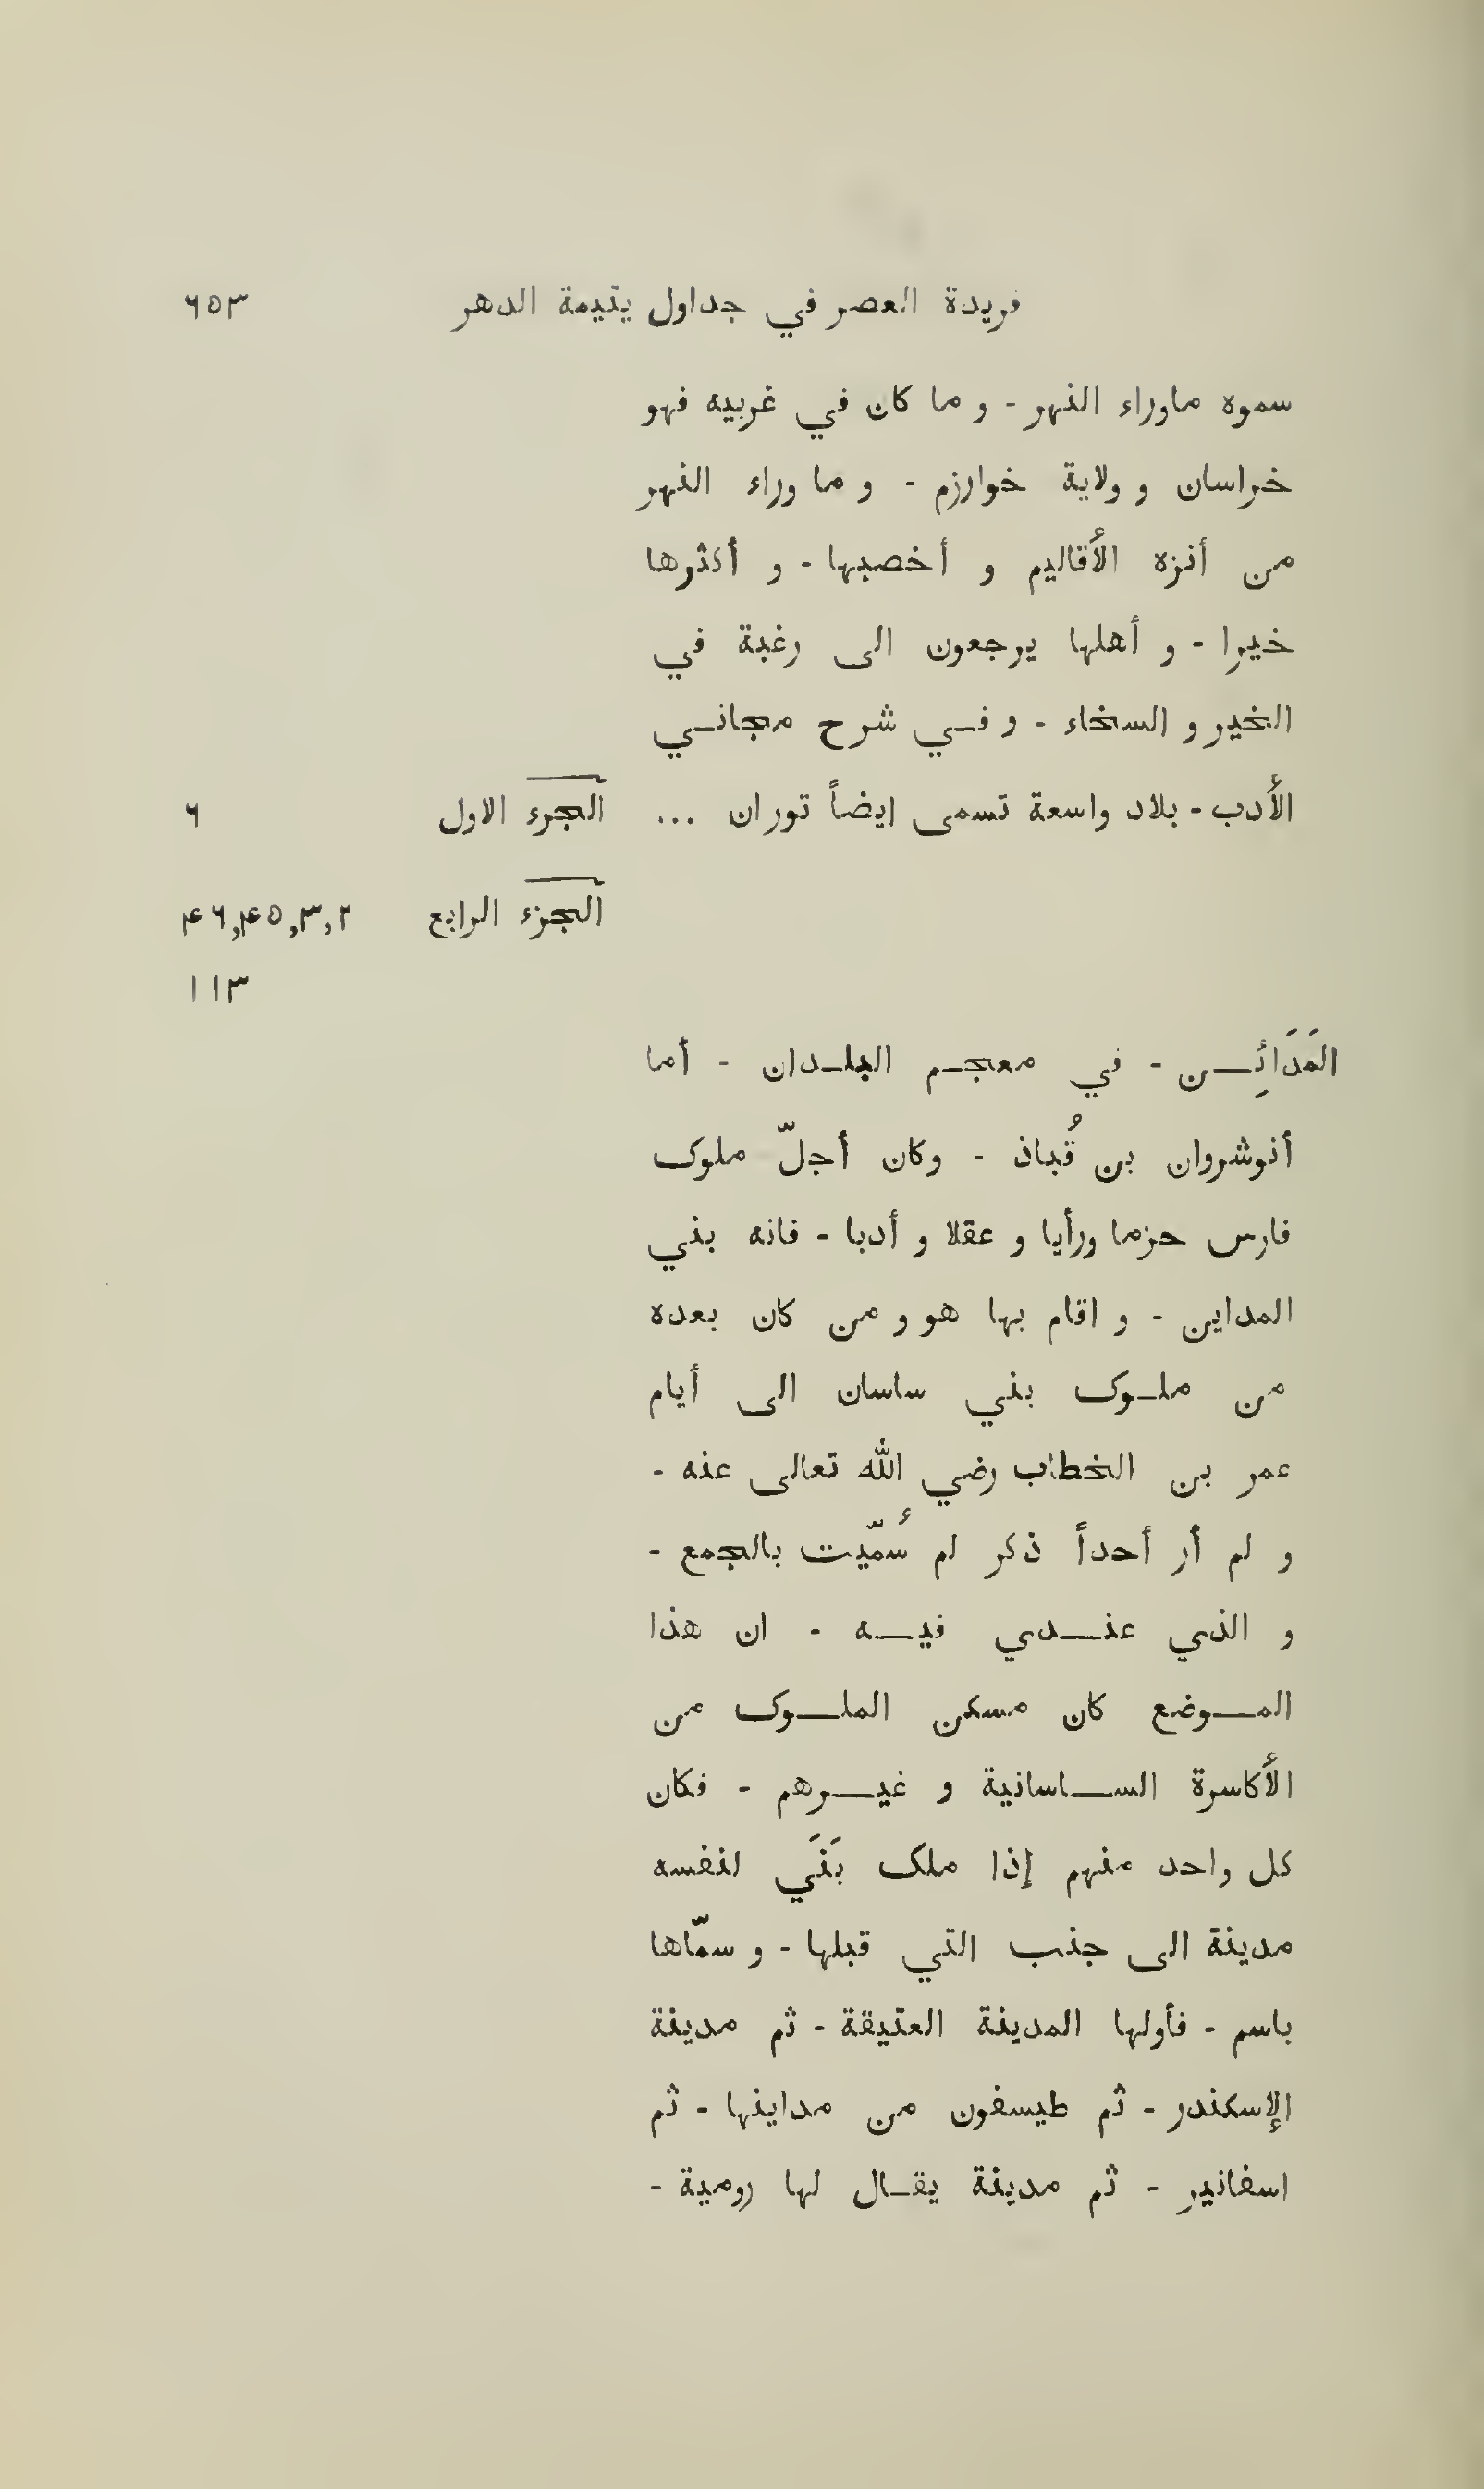 فريدة العصر في جداول يتيمة الدهر ٦٥٣
سموه ماوراء النهر - و ما كان في غربيه فهو
خراسان و ولاية خوارزم - و ما وراء النهر
من أنزه الأقاليم و أخصبها - و أكثرها
خيرا - و أهلها يرجعون الى رغبة في
الخير و السخاء - و فـي شرح مجانـي
الأدب - بلاد واسعة تسمى ايضاً توران ... الجزء الاول ٦
الجزء الرابع ٢,٣,٤٥,٤٦
١١٣
المَدَائِــن - في معجـم البلـدان - أما
أنوشروان بن قُباذ - وكان أجلّ ملوک
فارس حزما ورأيا و عقلا و أدبا - فانه بني
المداين - و اقام بها هو و من كان بعده
من ملـوک بني ساسان الى أيام
عمر بن الخطاب رضي الله تعالى عنه -
و لم أر أحداً ذكر لم سُمّيت بالجمع -
و الذي عنــدي فيــه - ان هذا
المــوضع كان مسكن الملــوک من
الأكاسرة الســاسانية و غيــرهم - فكان
كل واحد منهم إذا ملک بَنَي لنفسه
مدينة الى جنب التي قبلها - و سمّاها
باسم - فأولها المدينة العتيقة - ثم مدينة
الإسكندر - ثم طيسفون من مداينها - ثم
اسفانير - ثم مدينة يقـال لها رومية -